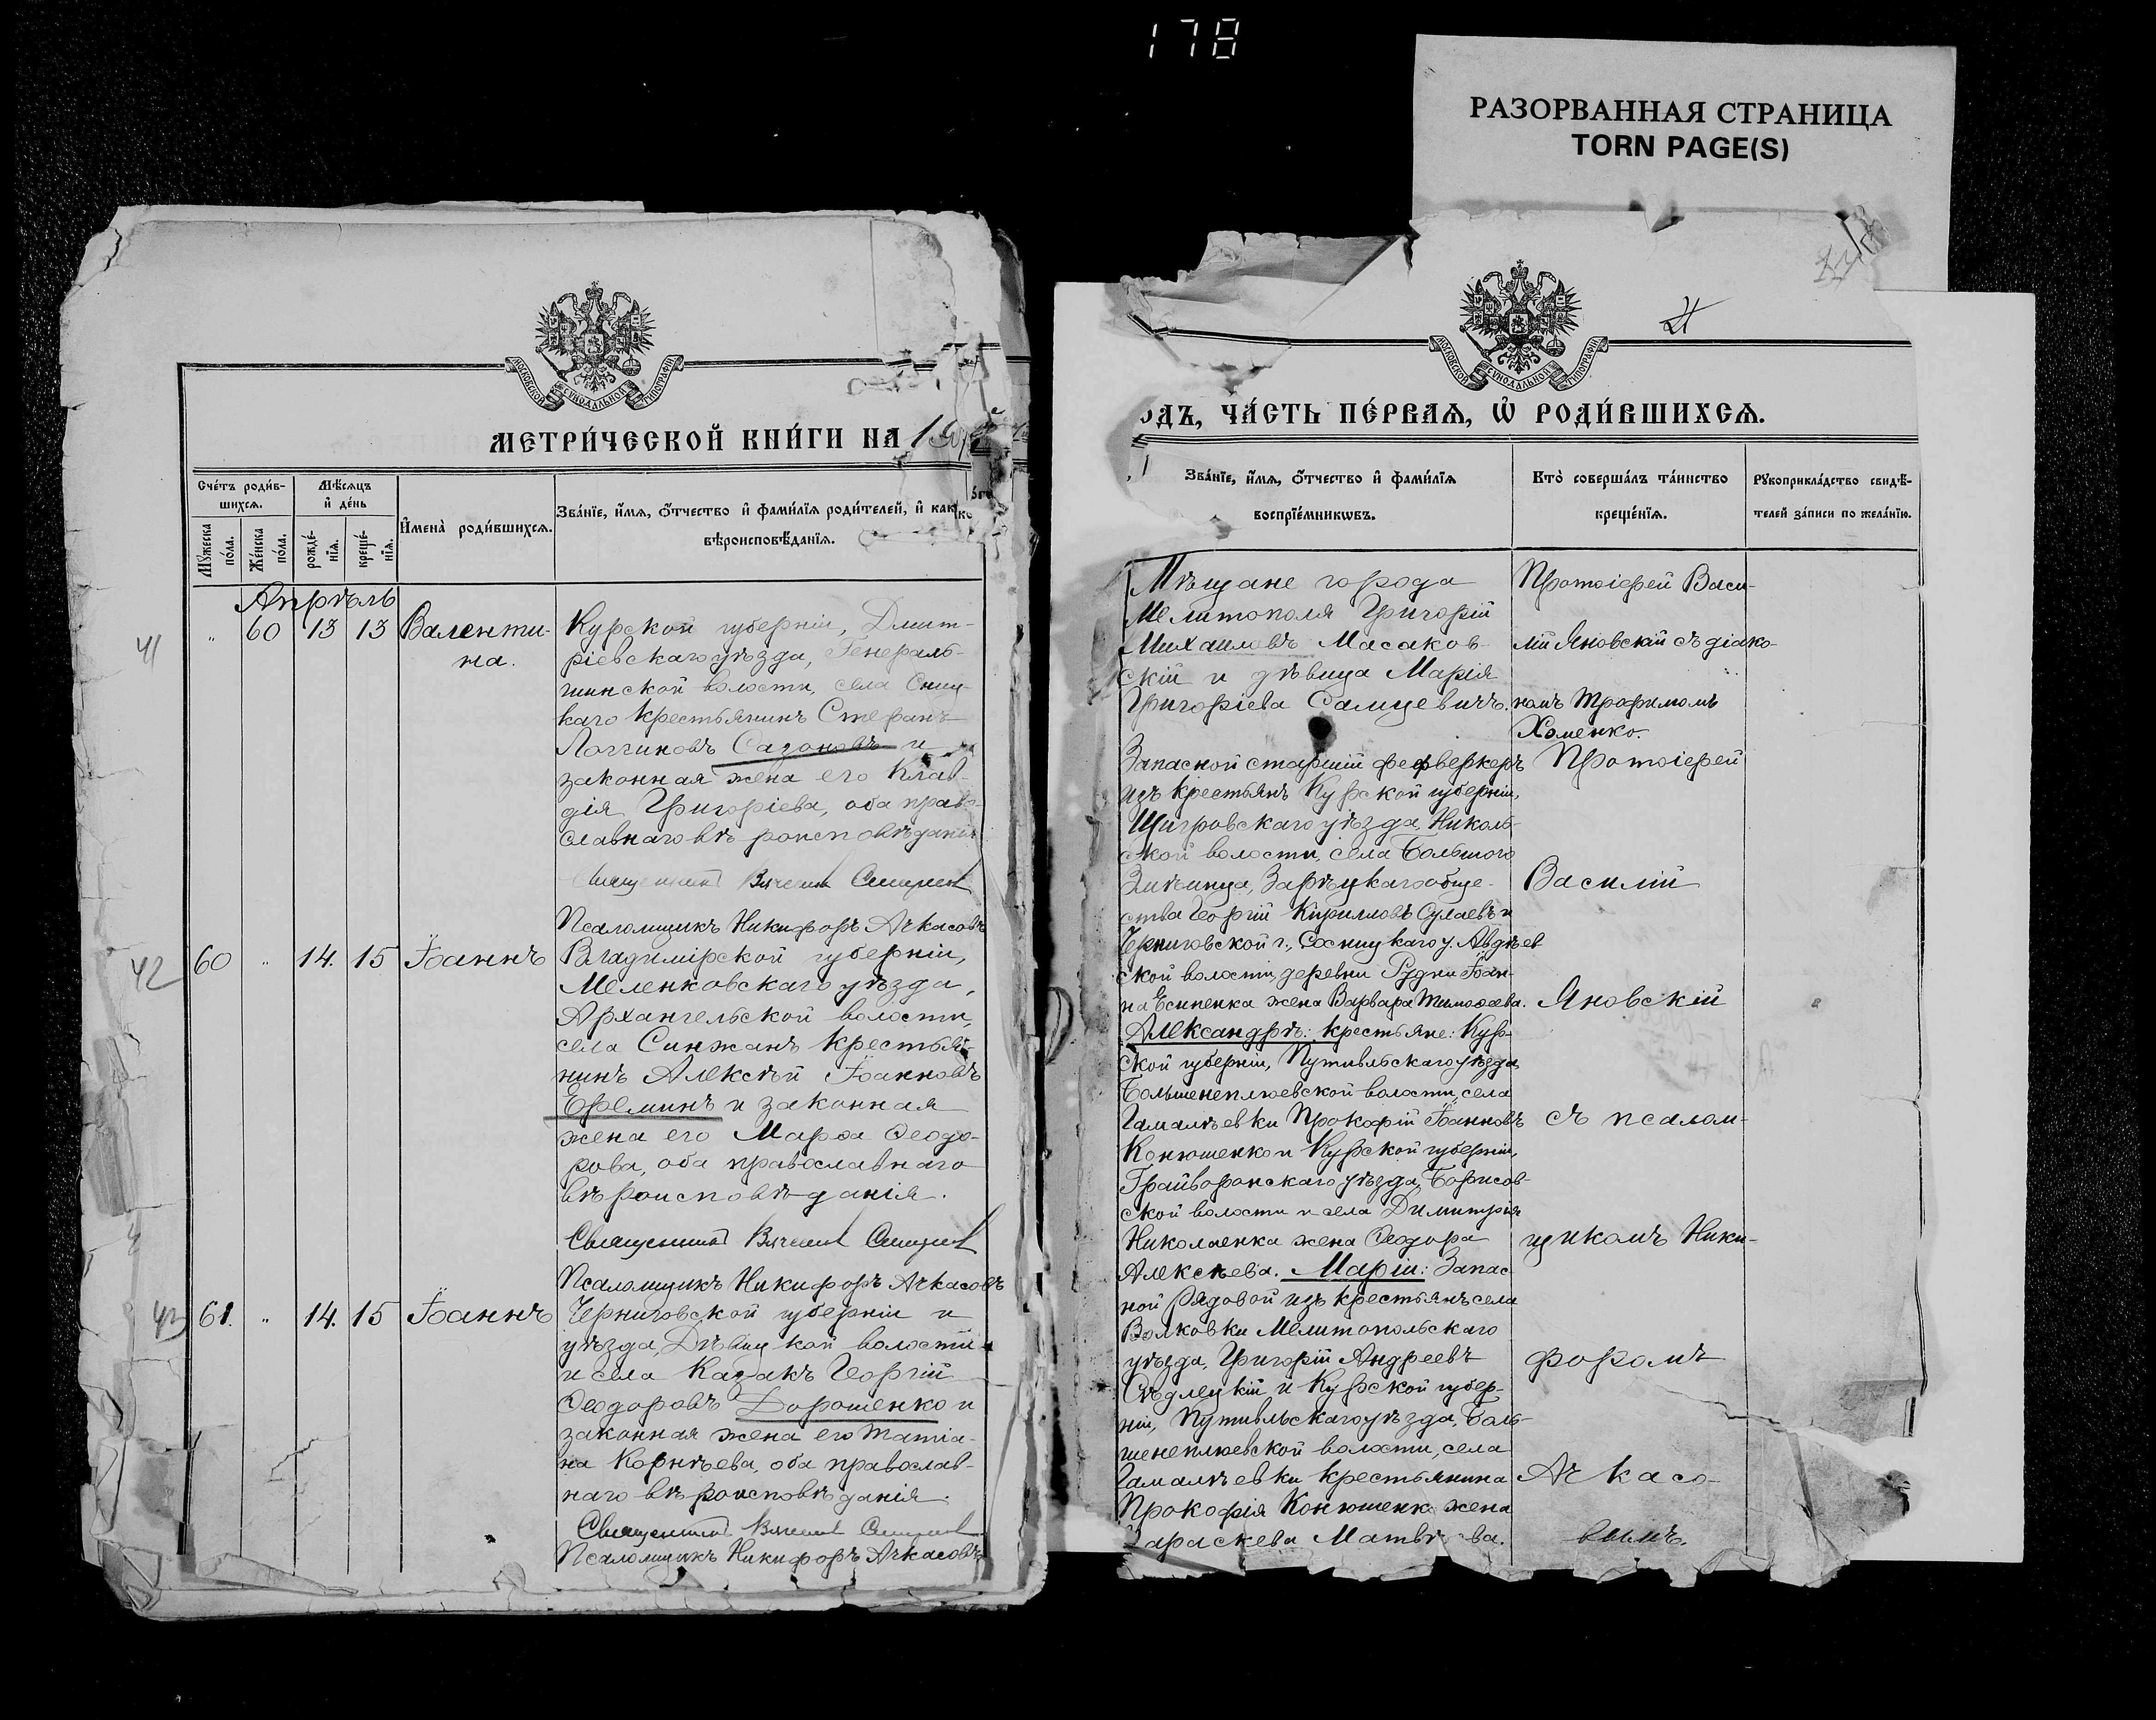 178
РАЗОРВАННАЯ СТРАНИЦА
TORN PAGE(S)
МОСКОВСКОЙ СУНОДАЛЬНОЙ ТИПОГРАФІИ
МЕТРИ́ЧЕСКОЙ КНИ́ГИ НА
Сче́тъ роди́в-
шихсѧ.
Мꙋжеска по́ла.
Же́нска по́ла.
Мѣ́сѧцъ
и҆ де́нь
рожде́-
нїѧ.
креще́-
нїѧ.
И҆мена̀ роди́вшихсѧ.
Зва́нїе, и҆́мѧ, ѻ҆́тчество и҆ фами́лїѧ роди́телей, и҆ как
вѣроисповѣ́данїѧ.
Апрѣль
41
" 60 13 13 Валенти-
на.
Курской губерніи, Дмит-
ріевскаго уѣзда, Генераль-
шинской волости, села
каго крестьянинъ Стефанъ
Логгиновъ Сазоновъ и
законная жена его Клав-
дія Григоріева, оба право-
славнаго вѣроисповѣданія
Священникъ
Псаломщикъ Никифоръ Ачкасовъ
42
60 " 14. 15 Іоаннъ
Владимірской губерніи,
Меленковскаго уѣзда,
Архангельской волости,
села Синжанъ крестья-
нинъ Алексѣй Іоанновъ
Ереминъ и законная
жена его Марѳа Ѳеодо-
рова, оба православнаго
вѣроисповѣданія.
Священникъ
Псаломщикъ Никифоръ Ачкасовъ
43
61. " 14. 15 Іоаннъ
Черниговской губерніи и
уѣзда, Дѣвицкой волости
и села Казакъ Георгій
Ѳеодоровъ Дорошенко и
законная жена его Татіа-
на Корнѣева, оба православ-
наго вѣроисповѣданія.
Священникъ
Псаломщикъ Никифоръ Ачкасовъ
МОСКОВСКОЙ СУНОДАЛЬНОЙ ТИПОГРАФІИ
ОДЪ, ЧА́СТЬ ПЕ́РВАѦ, Ѡ҆ РОДИ́ВШИХСѦ.
Зва́нїе, и҆́мѧ, ѻ҆́тчество и҆ фами́лїѧ
воспрїе́мникѡвъ.
Кто̀ соверша́лъ та́инство
креще́нїѧ.
Рꙋкоприкла́дство свидѣ́-
телей за́писи по жела́нїю.
Мѣщане города
Мелитополя Григорій
Михаиловъ Масаков-
скій и дѣвица Марія
Григоріева Самцевичъ.
Протоіерей Васи-
лій Яновскій съ діако-
номъ Трофимомъ
Хоменко.
Запасной старшій феерверкеръ
изъ крестьянъ Курской губерніи,
Щигровскаго уѣзда, Николь-
ской волости, села Большого
Змѣинца, Зарѣцкаго обще-
ства Георгій Кирилловъ Сулаевъ и
Черниговской г., Сосницкаго у. Авдѣев
ской волости, деревни Рудни Іоан-
на Есипенка жена Варвара Тимоѳеева.
Александръ: крестьяне: Кур-
ской губерніи, Путивльскаго уѣзда,
Большенеплюевской волости, села
Гамалѣевки Прокофій Іоанновъ
Конюшенко и Курской губерніи,
Грайворонскаго уѣзда, Борисов-
ской волости и села Димитрія
Николаенка жена Ѳеодора
Алексѣева. Маріи: Запас-
ной рядовой изъ крестьянъ села
Волковки Мелитопольскаго
уѣзда, Григорій Андреевъ
Сѣдлецкій и Курской губер-
ніи, Путивльскаго уѣзда, Боль-
шенеплюевской волости, села
Гамалѣевки крестьянина
Прокофія Конюшенко жена
Параскева
Протоіерей
Василій
Яновскій
съ псалом-
щикомъ Ники-
форомъ
Ачкасо-
вымъ.